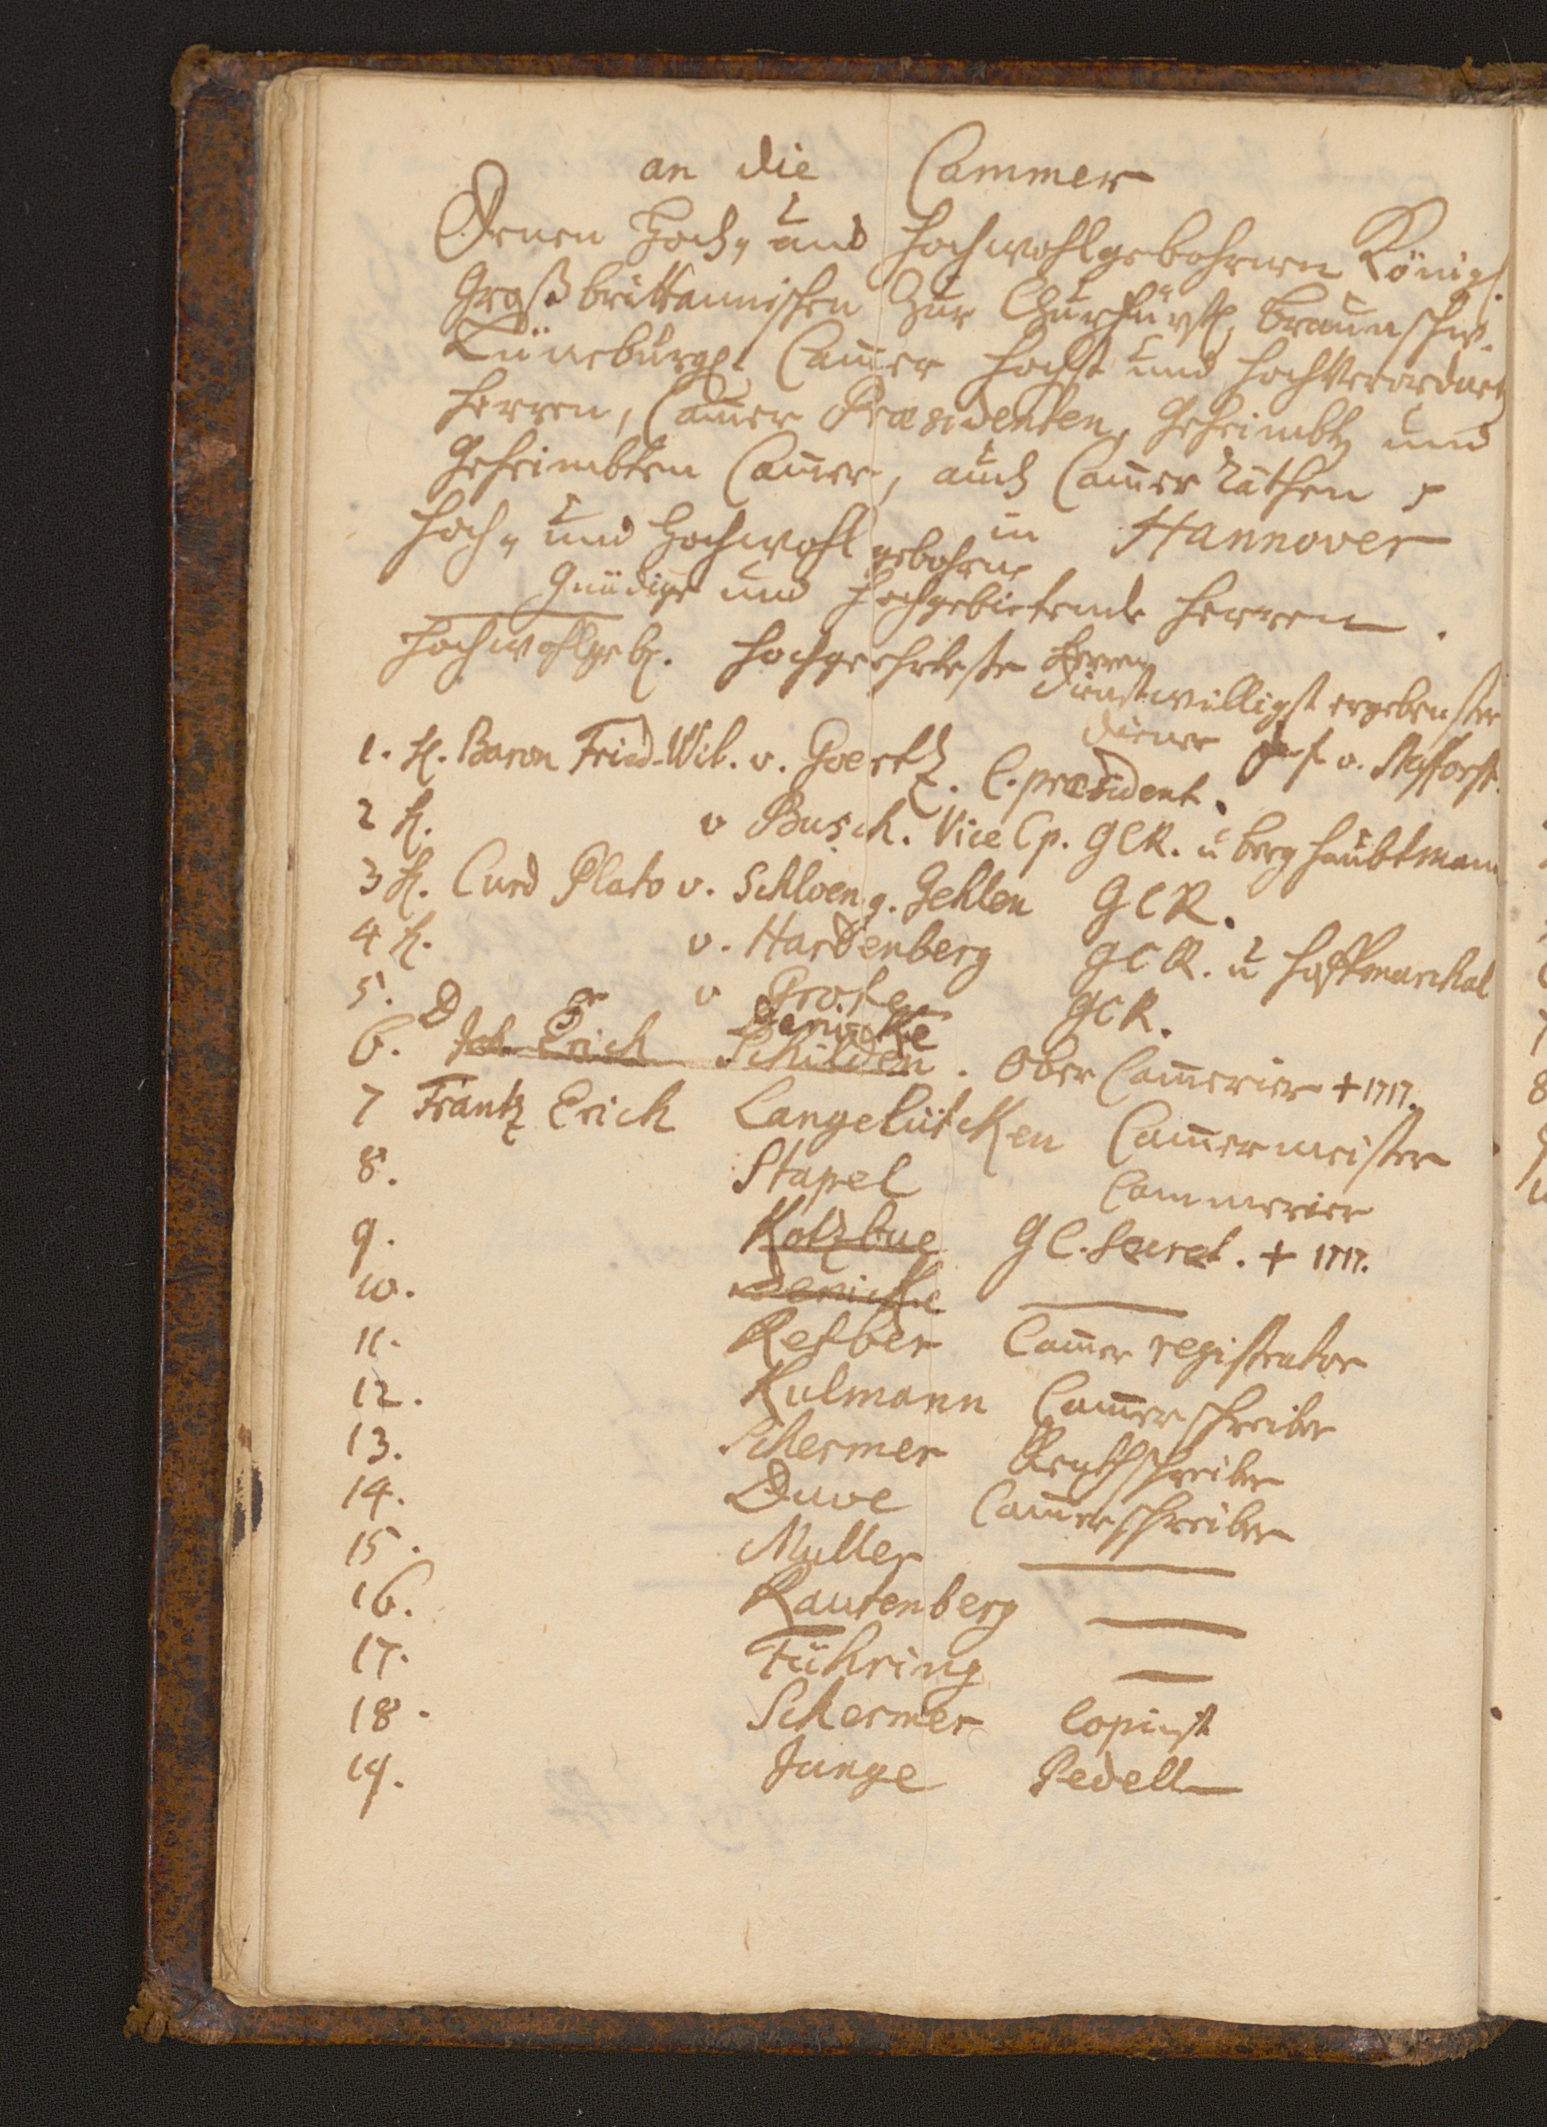 an die Cammer
Denen Hoch- und Hochwohlgebohrnen Königl.
Großbrittannischen Zur Churfürstl. Braunschw.
Lüneburgl. Cam̅er Höchst und Hochverordnete
Herren, Cam̅er Præsidenten, Geheimbte und
Geheimbten Cam̅er, auch Cam̅er Räthen
in Hannover
Hoch- und Hochwohl gebohrne
Gnädige und Hochgebietende Herren.
Hochwohlgeb. Hochgeehrteste Herren
dienstwilligst ergebenster
Diener v. Staffhorst.
1. H. Baron Fried-Wil. v. Goertz. C. præsident.
2 H. v Busch. Vice Cp. GCR. u berghaubtman
3 H. Curd Plato v. Schloen g. Gehlen GCR.
4 H. v. Hardenberg GCR. u hoffmarchal
5. v Grote GCR.
D Gr Denicke
6. Joh. Erich Schilden. Ober Cam̅erier + 1717.
7 Frantz Erich Langelütcken Cam̅ermeister
8. Stapel Cammerier
9. Kotzbue GC. Secret. + 1717.
10. Denicke
11. Retber Cam̅er registrator
12. Kulmann Cam̅erschreiber
13. Schermer Renthschreiber
14. Duve Cam̅erschreiber
15. Muller
16. Rautenberg
17. Führing
18. Schermer Copiist
19. Junge Pedell